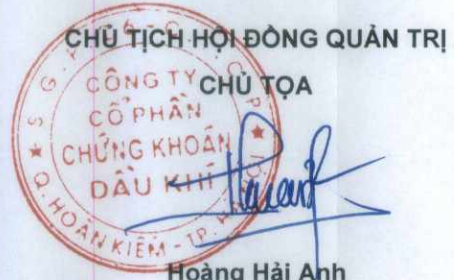 CHỦ TỊCH HỘI ĐỒNG QUẢN TRỊ
CHỦ TỌA
CÔNG TY
CỔ PHẦN
CHỨNG KHOÁN
DẦU KHÍ
Q. HOÀN KIẾM - TP.
Hoàng Hải Anh